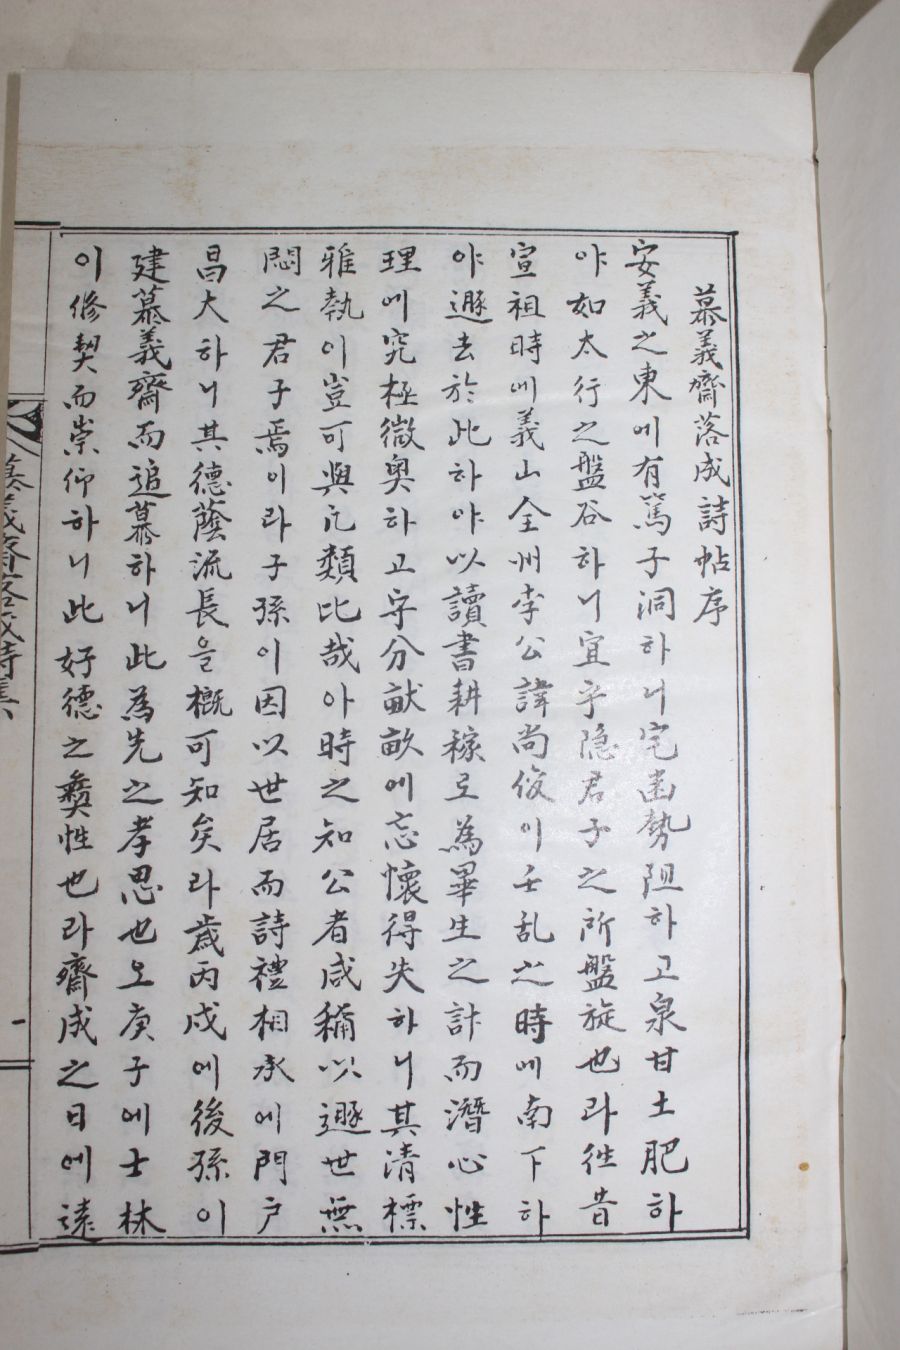 慕義齋落成詩帖序
安義之東에有篤子洞하니宅幽勢阻하고泉甘土肥하
야如太行之盤谷하니宜乎隐君子之所盤旋也라徃昔
宣祖時에義山全州李公諱尚俊이壬乱之時에南下하
야遯去於此하야以讀書耕稼로為畢生之計而潛心性
理에究極微奥하고守分猷畝에忘懷得失하니其清標
雅執이豈可與凡類比哉아時之知公者咸稱以遯世無
悶之君子焉이라子孫이因以世居而詩禮相承에門户
昌大하니其德蔭流長을概可知矣라歲丙戌에後孫이
建慕義齋而追慕하니此為先之孝思也오庚子에士林
이修契而崇仰하니此好德之彛性也라齋成之日에遠
慕義齋落成詩集